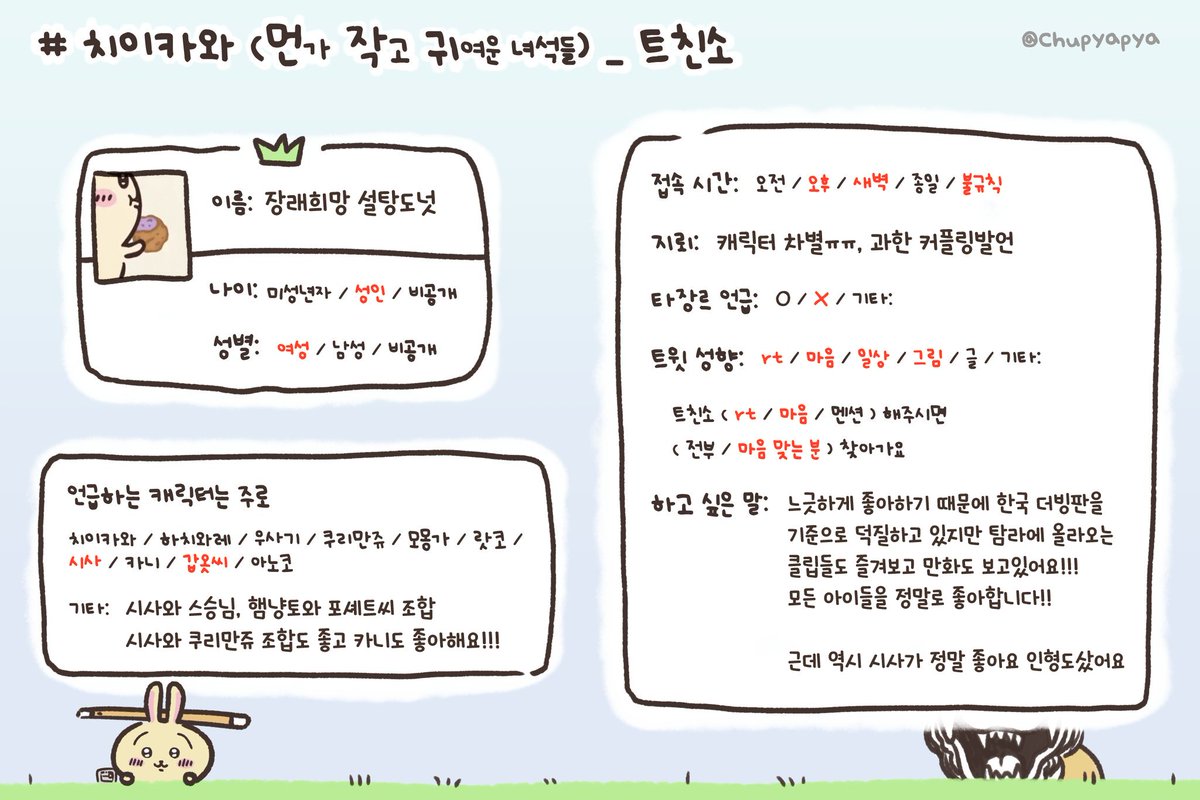 # 치이카와 (먼가 작고 귀여운 녀석들) _ 트친소
@Chupyapya
이름: 장래희망 설탕도넛
나이: 미성년자 / 성인 / 비공개
성별: 여성 / 남성 / 비공개
언급하는 캐릭터는 주로
치이카와 / 하치와레 / 우사기 / 쿠리만쥬 / 모몽가 / 랏코 /
시사 / 카니 / 갑옷씨 / 아노코
기타: 시사와 스승님, 햄냥토와 포셰트씨 조합
시사와 쿠리만쥬 조합도 좋고 카니도 좋아해요!!!
접속 시간: 오전 / 오후 / 새벽 / 종일 / 불규칙
지뢰: 캐릭터 차별ㅠㅠ, 과한 커플링발언
타장르 언급: O / X / 기타:
트윗 성향: rt / 마음 / 일상 / 그림 / 글 / 기타:
트친소 ( rt / 마음 / 멘션 ) 해주시면
( 전부 / 마음 맞는 분 ) 찾아가요
하고 싶은 말: 느긋하게 좋아하기 때문에 한국 더빙판을
기준으로 덕질하고 있지만 탐라에 올라오는
클립들도 즐겨보고 만화도 보고있어요!!!
모든 아이들을 정말로 좋아합니다!!
근데 역시 시사가 정말 좋아요 인형도샀어요